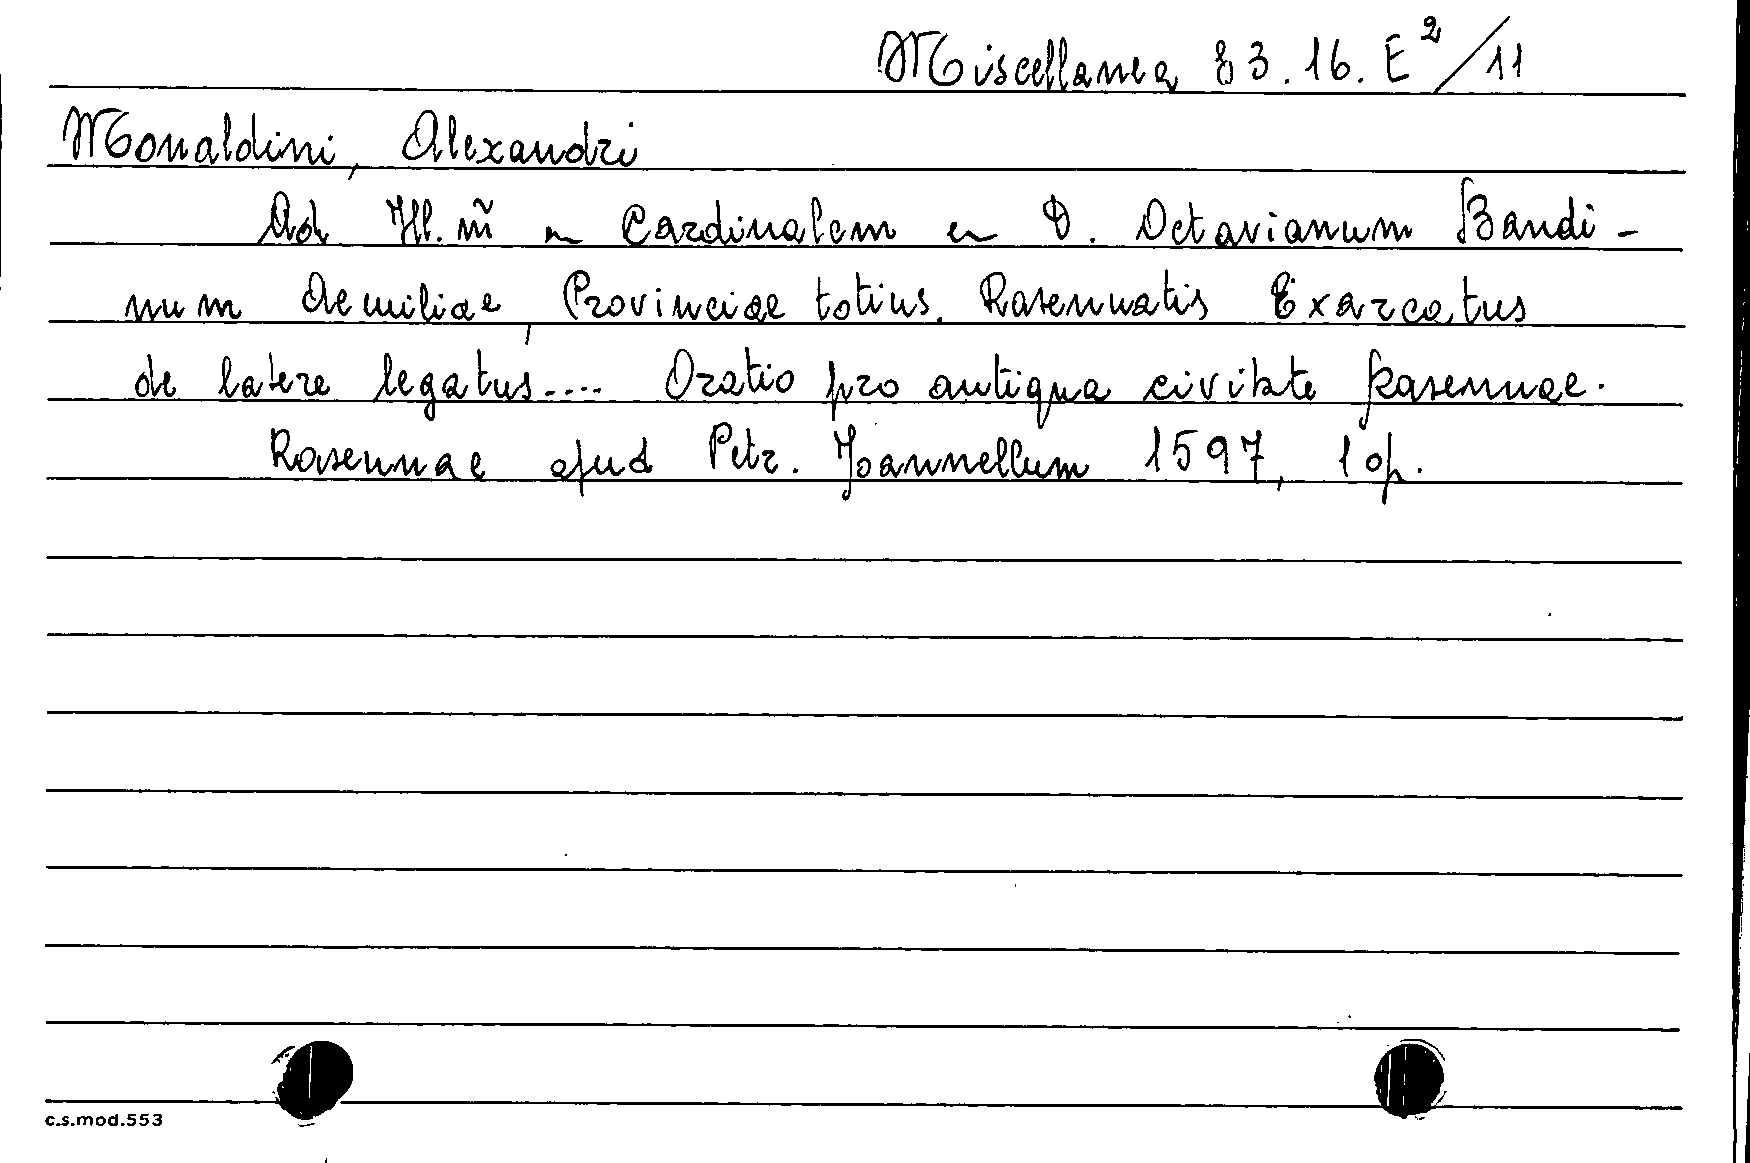 Miscellanea 83.16.E²/11
Monaldini, Alexandri
Ad Ill.m̃ m Cardinalem en D. Octavianum Bandi-
num Aemiliae, Provinciae totius. Ravennatis Exarcatus
de latere legatus.... Oratio pro antiqua civitate Ravennae.
Ravennae apud Petr. Joannellum 1597, 1 op.
c.s.mod.553